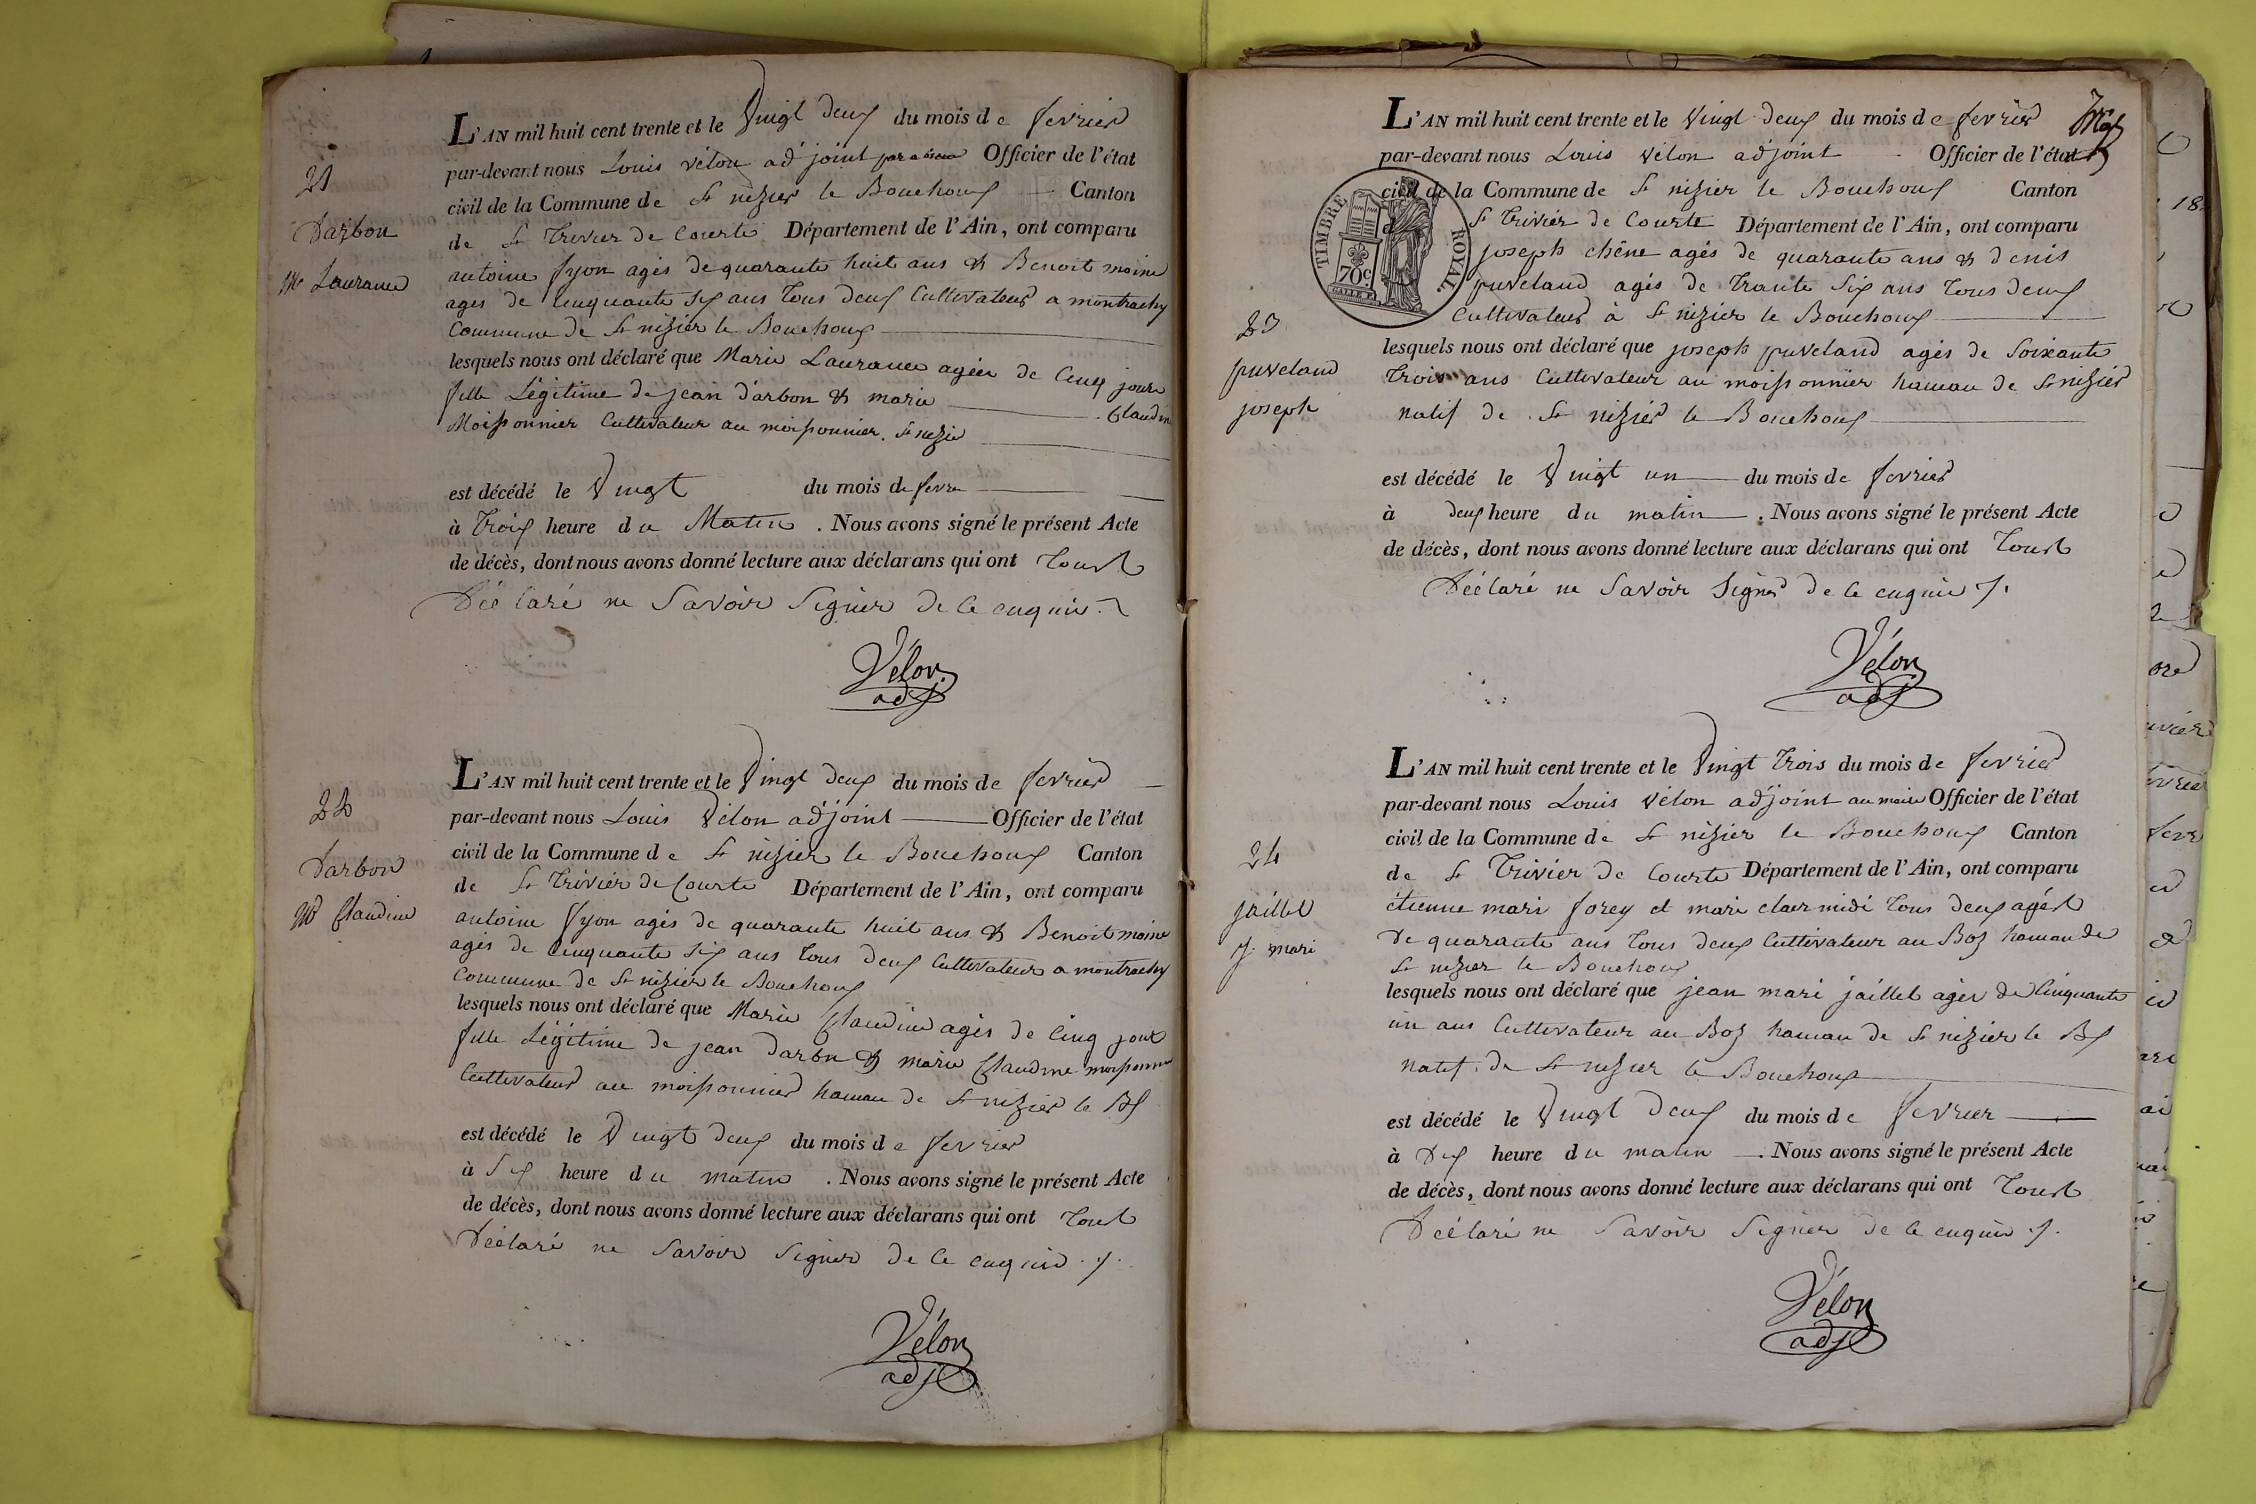 21
Darbon
Mie Laurance
L'AN mil huit cent trente et le Vingt deux du mois de fevrier
par-devant nous Louis Vélon adjoint Officier de l'état
civil de la Commune de St nizier le Bouchoux Canton
de St Trivier de Courte Département de l'Ain, ont comparu
antoine fyon agés de quarante huit ans & Benoit moine
ages de cinquante six ans tous deux Cultivateur a montrachy
Commune de St nizier le Bouchoux
lesquels nous ont déclaré que Marie Laurance agée de Cinq jours
fille Légitime de jean d'arbon & marie Claudine
Moissonnier Cultivateur au moissonnier, St nizie
est décédé le Vingt du mois de fevrie
à Trois heure du Matin . Nous avons signé le présent Acte
de décès, dont nous avons donné lecture aux déclarans qui ont Tous
Déclaré ne Savoir Signer de ce enquis
Vélon
adj
22
Darbon
Mie Claudine
L'AN mil huit cent trente et le Vingt deux du mois de fevrier
par-devant nous Louis Vélon adjoint Officier de l'état
civil de la Commune de St nizier le Bouchoux Canton
de St Trivier de Courte Département de l'Ain, ont comparu
antoine fyon agés de quarante huit ans & Benoit moine
agés de Cinquante six ans tous deux Cultivateur a montrachy
Commune de St nizier le Bouchoux
lesquels nous ont déclaré que Marie Claudine agés de Cinq jour
fille Légitime de jean Darbn & marie Claudine moissonnie
Cultivateur au moissonnier hamau de St nizier le Bx
est décédé le Vingt deux du mois de fevrier
à Six heure du matin . Nous avons signé le présent Acte
de décès, dont nous avons donné lecture aux déclarans qui ont Tous
Déclaré ne Savoir Signer de ce enquis
Vélon
adj
23
puveland
joseph
TIMBRE ROYAL
70c
L'AN mil huit cent trente et le Vingt deux du mois de fevrier
par-devant nous Louis Vélon adjoint Officier de l'état
civil de la Commune de St nizier le Bouchoux Canton
d St Trivier de Courte Département de l'Ain, ont comparu
joseph chêne agés de quarante ans & denis
puveland agés de Trante Six ans Tous deux
Cultivateur à St nizier le Bouchoux
lesquels nous ont déclaré que joseph puveland agés de Soixante
Trois ans Cultivateur au moissonnier hamau de St nizier
natif de St nizier le Bouchoux
est décédé le Vingt un du mois de fevrier
à deux heure du matin . Nous avons signé le présent Acte
de décès, dont nous avons donné lecture aux déclarans qui ont Tous
Déclaré ne Savoir Signer de ce enquis
Vélon
adj
24
jaillet
j. mari
L'AN mil huit cent trente et le Vingt Trois du mois de fevrier
par-devant nous Louis Vélon adjoint au maire Officier de l'état
civil de la Commune de St nizier le Bouchoux Canton
de St Trivier de Courte Département de l'Ain, ont comparu
étienne mari forey et mari clair midi Tous deux agés
De quarante ans Tous deux Cultivateur au Boz hamau de
St nizier le Bouchoux
lesquels nous ont déclaré que jean mari jaillet agés de Cinquante
un ans Cultivateur au Boz hamau de St nizier le Bx
natif de St nizier le Bouchoux
est décédé le Vingt deux du mois de fevrier
à Dix heure du matin . Nous avons signé le présent Acte
de décès, dont nous avons donné lecture aux déclarans qui ont Tous
Déclaré ne Savoir Signer de ce enquis
Vélon
adj